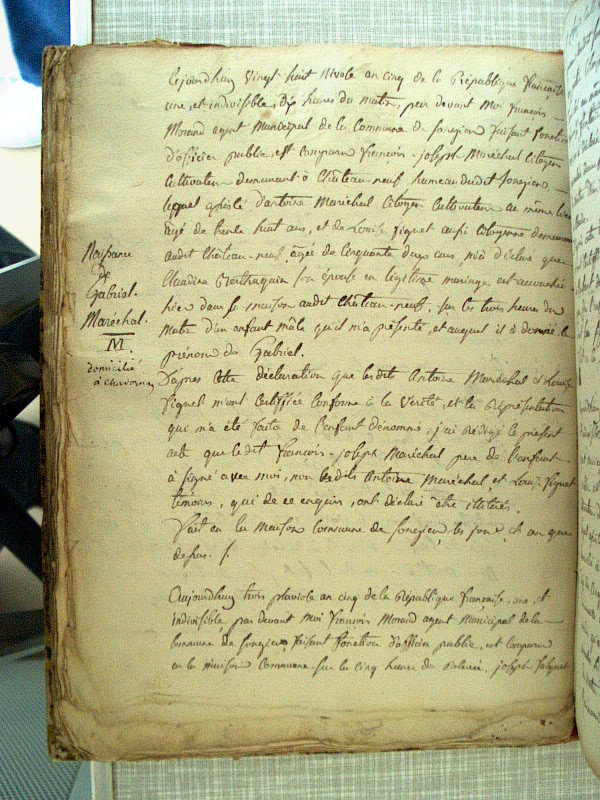 Cejourdhuy vingt huit Nivose an cinq de la République françoise
une, et indivisible, dix heures du matin, par devant Moi françois
Morand agent Municipal de la Commune de songieu faisant fonction
d'officier public, est comparu françois-joseph Maréchal Citoyen
Cultivateur demeurant à Château-neuf hameau dudit songieu,
lequel assisté d'antoine Maréchal Citoyen Cultivateur au même lieu
âgé de trente huit ans, et de Louise Piquet aussi Citoyenne demeurant
audit Château-neuf, âgée de Cinquante deux ans m'a déclaré que
Claudine son épouse en légitime mariage est accouchée
hier dans sa maison audit Château-neuf, sur les trois heures du
Matin d'un enfant mâle qu'il m'a présenté, et auquel il a donné le
prénom de Gabriel.
Naissance
de
Gabriel
Maréchal.
M.
domicilié
à
D'apres cette déclaration que lesdits Antoine Maréchal et Louise
Piquet m'ont Certiffiée Conforme à la Vérité, et la Représentation
qui m'a été faite de l'enfant dénommé, j'ai rédigé le présent
acte que ledit françois-joseph Maréchal pere de l'enfant
à signé avec moi, non lesdits Antoine Maréchal et Louise Piquet
témoins, qui de ce enquis, ont déclaré être illitérés.
Fait en la Maison Commune de songieu, les jour et an que
dessus.
Aujourdhuy trois pluviose an cinq de la République françoise, une, et
indivisible, par devant Moi françois Morand agent Municipal de la
Commune de songieu, faisant fonction d'officier public, est comparu
en la maison Commune sur les cinq heures de joseph